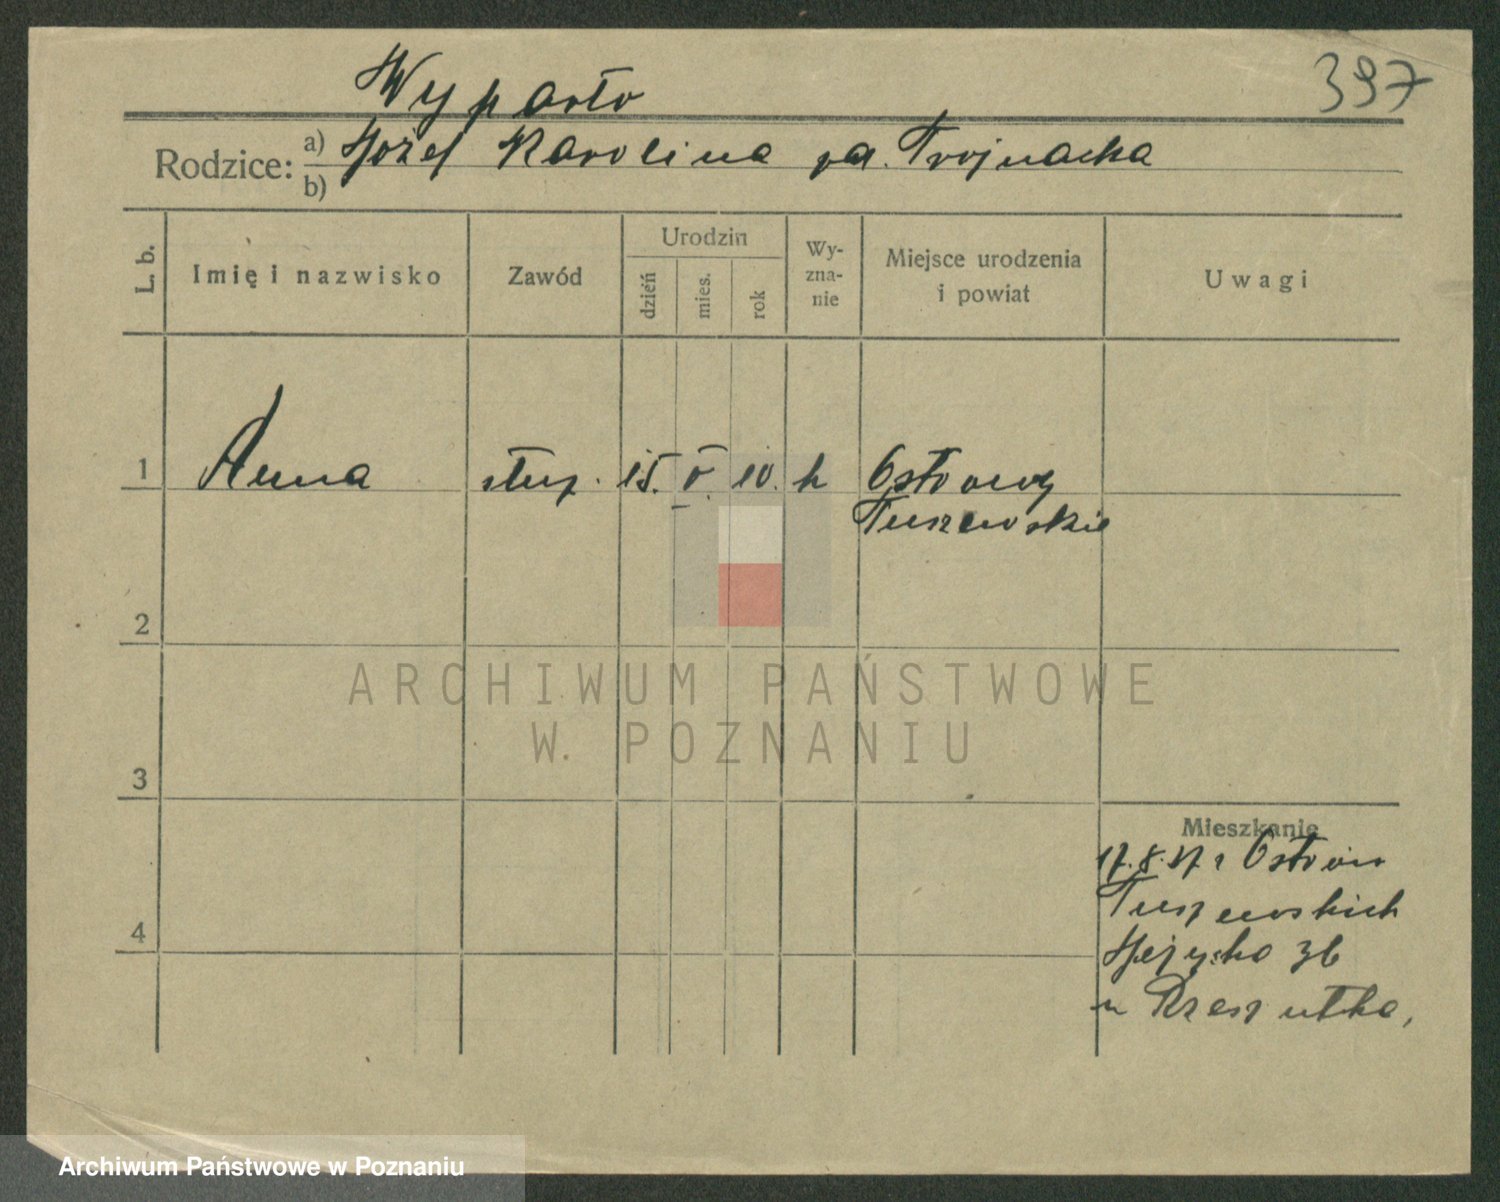 397
Wyparło
Rodzice: a) Józef Karolina za. Trojnacka
b)
L. b.
Imię i nazwisko
Zawód
Urodzin
dzień
mies.
rok
Wy-
zna-
nie
Miejsce urodzenia
i powiat
Uwagi
1 Anna służ. 15. V. 10. k Ostrowy
Tuszewskie
2
3
4
Mieszkanie
17.8.37 z Ostrów
Tuszewskich
Jeżycka 36
u Rzeszutka,
ARCHIWUM PAŃSTWOWE
W POZNANIU
Archiwum Państwowe w Poznaniu